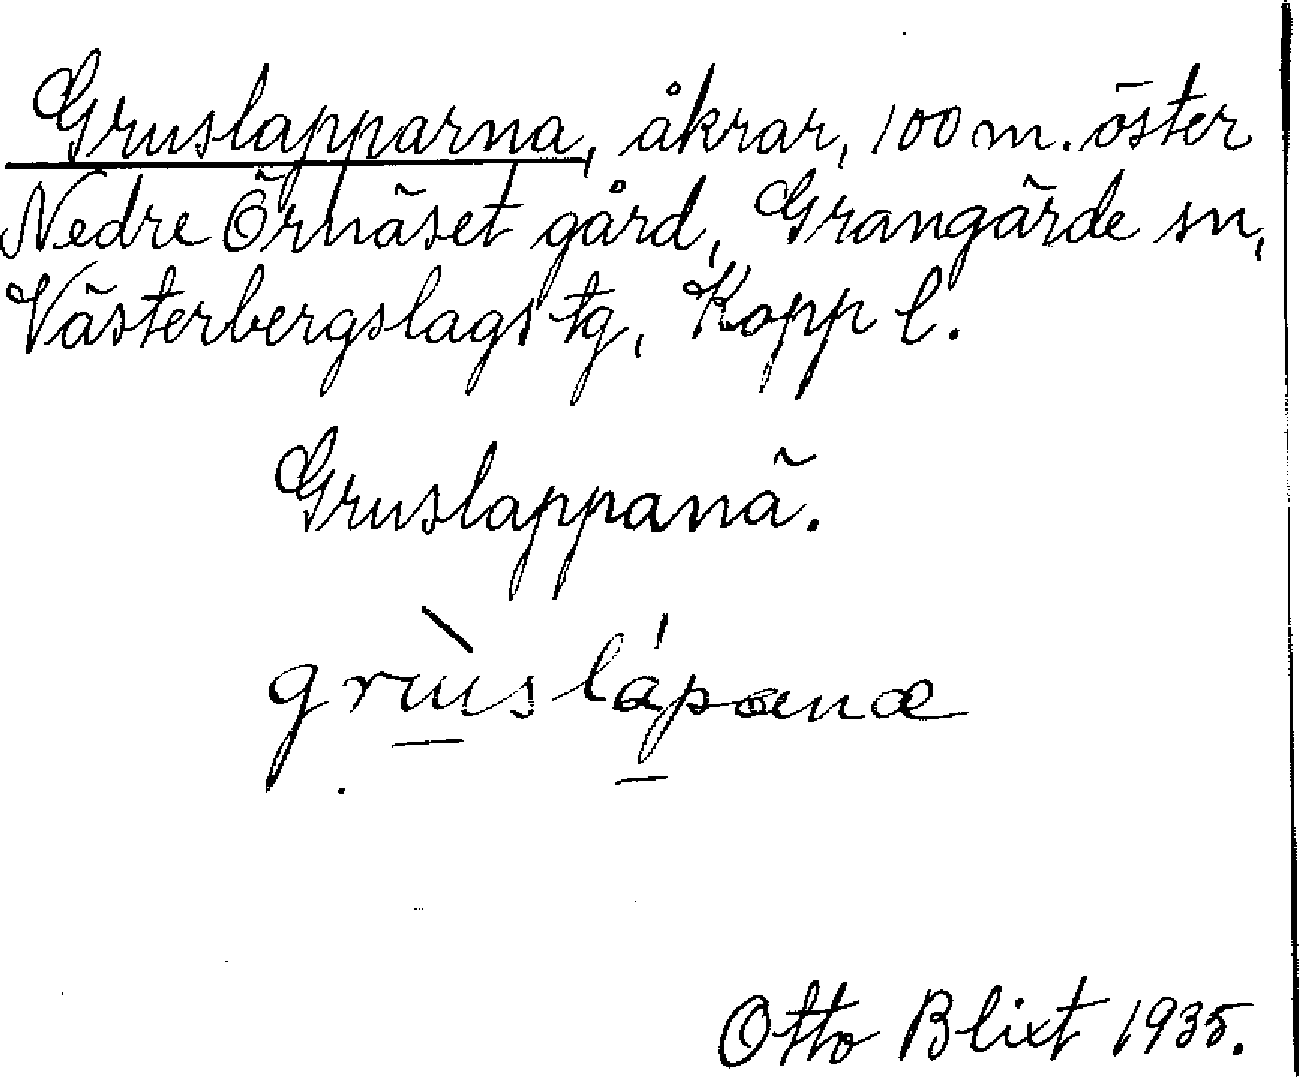 Gruslapparna, åkrar, 100 m. öster
Nedre Örnäset gård, Grangärde sn,
Västerbergslags tg, Kopp l.
Gruslappanä.
grùslápanæ
Otto Blixt 1935.